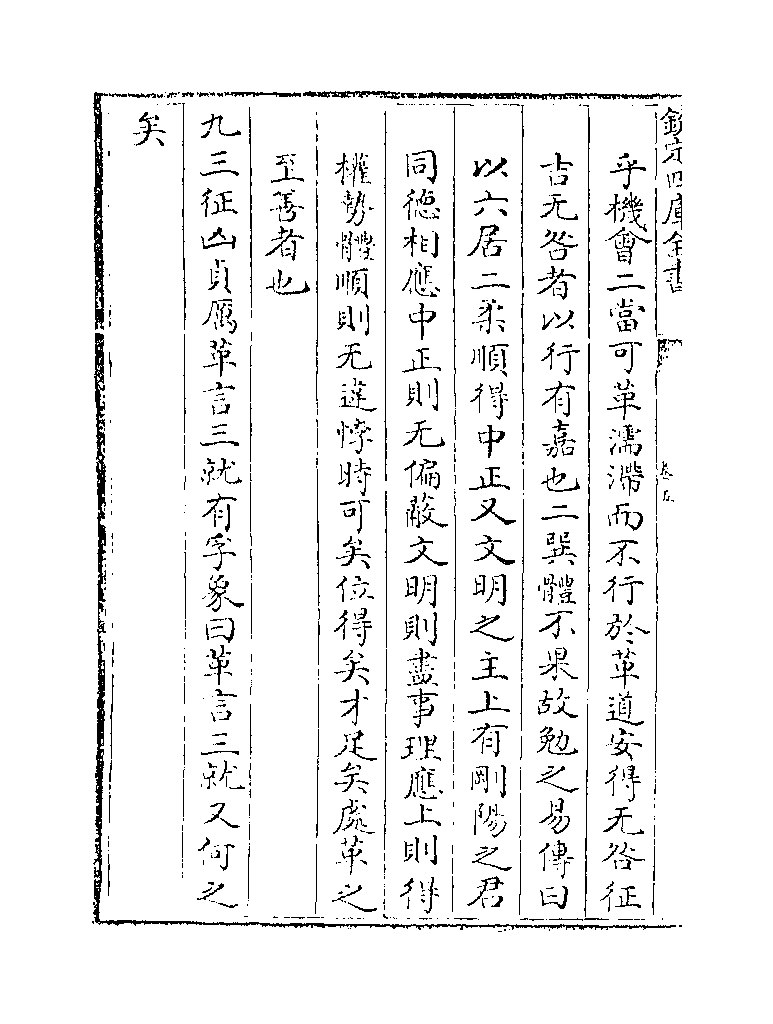 欽定四庫全書
卷五
乎機會二當可革濡滯而不行於革道安得无咎征
吉无咎者以行有嘉也二巽體不果故勉之易傳曰
以六居二柔順得中正又文明之主上有剛陽之君
同德相應中正則无偏蔽文明則盡事理應上則得
權勢體順則无違悖時可矣位得矣才足矣處革之
至善者也
九三征凶貞厲革言三就有孚象曰革言三就又何之
矣